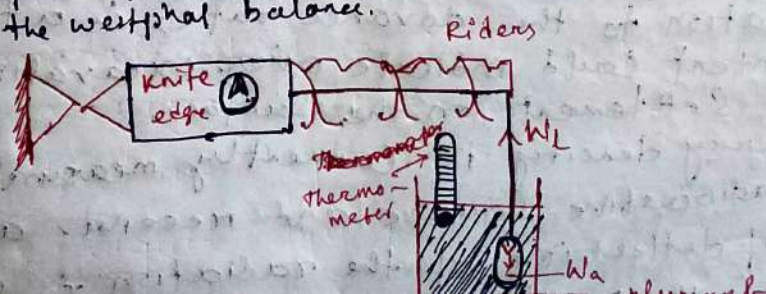 the westphal balance.
Riders
Knife
edge
A
WL
Thermometer
thermo-
meter
Wa